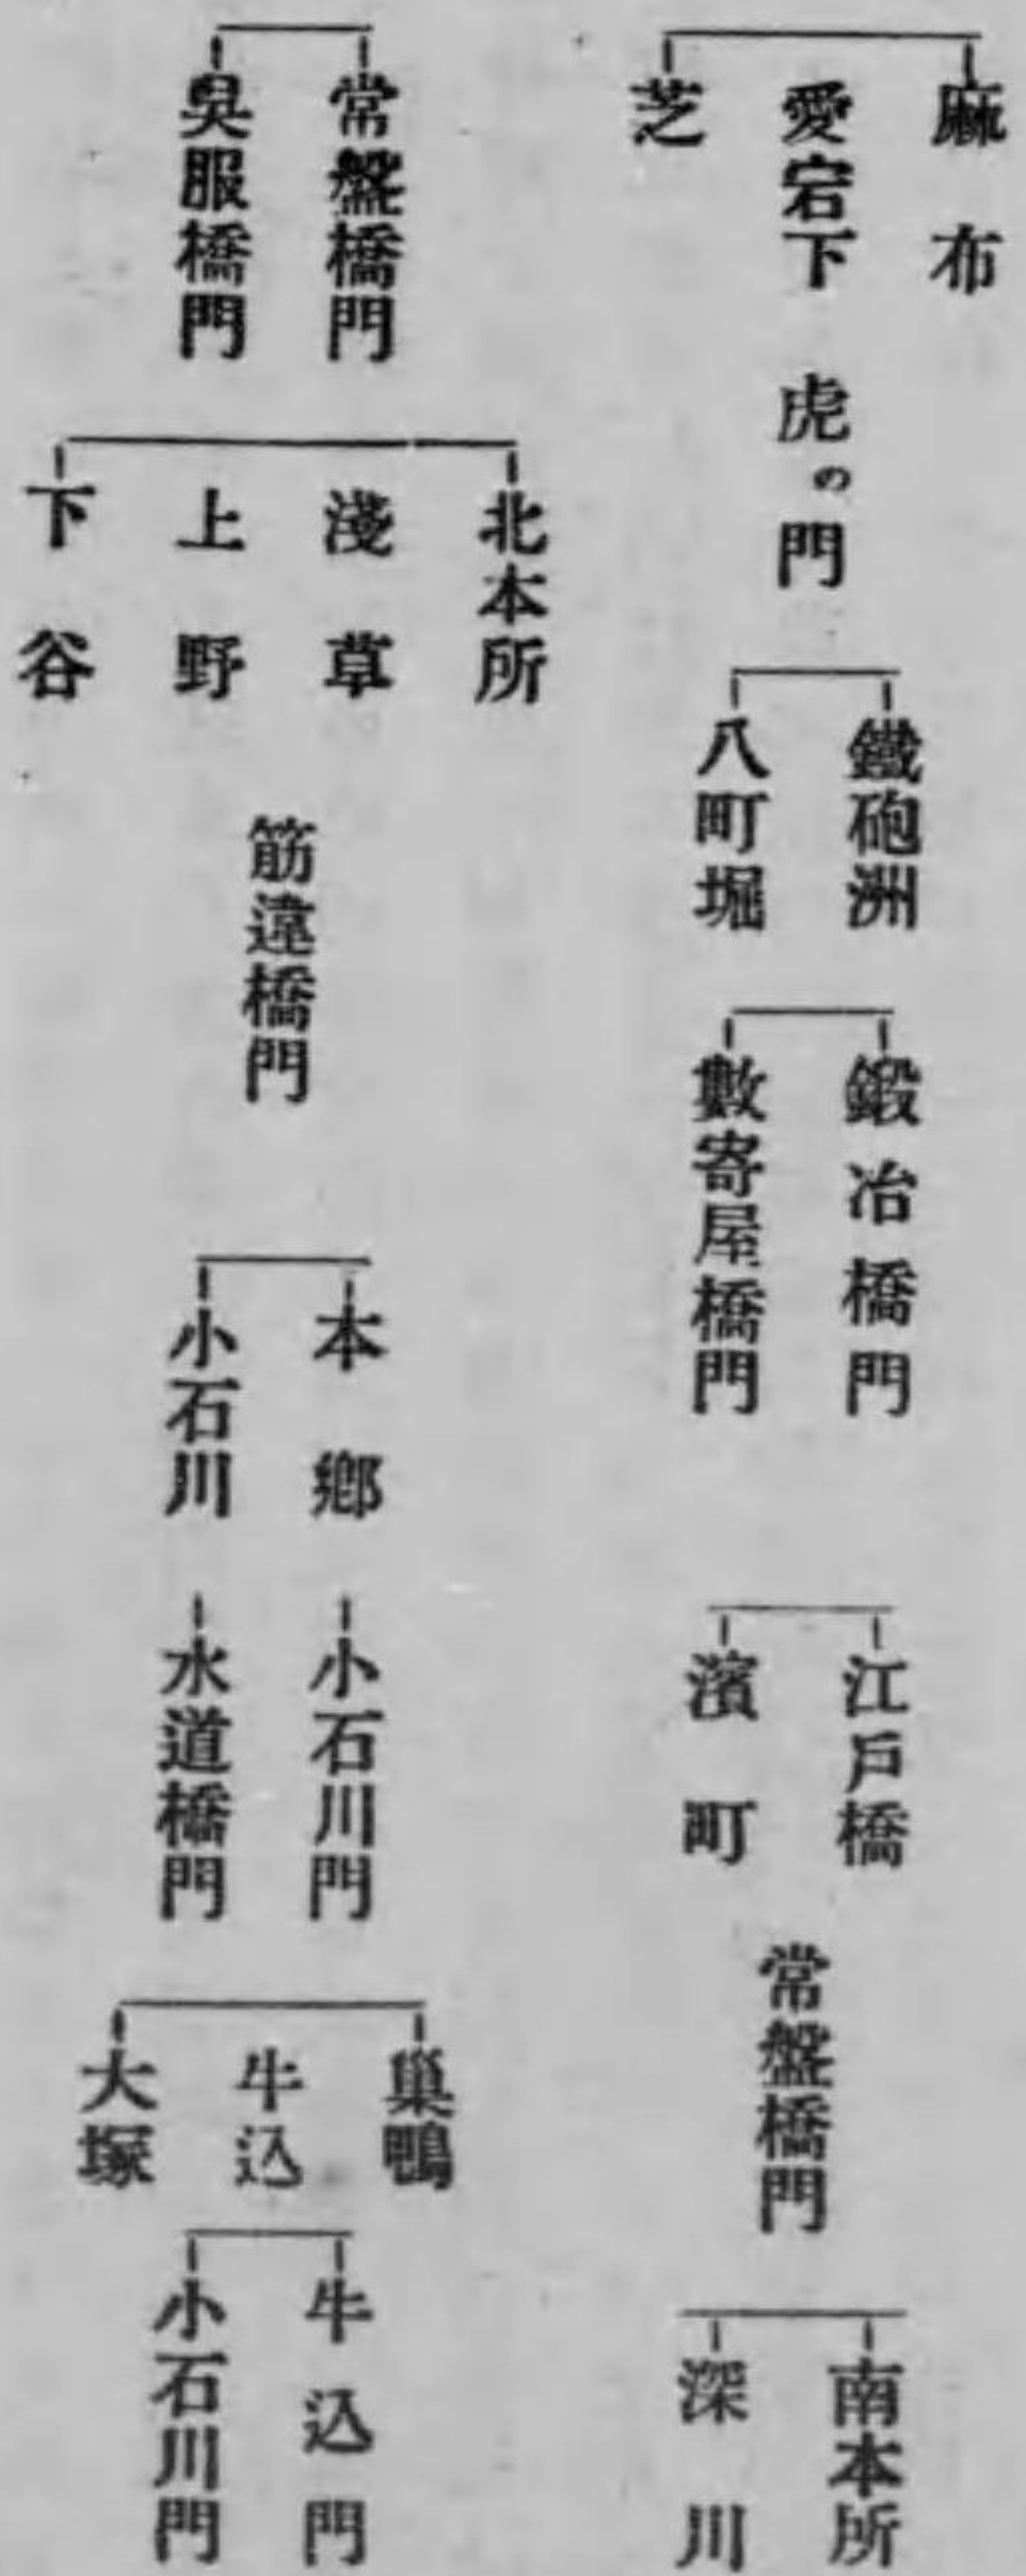 麻布
愛宕下
芝
虎の門
鐵砲洲
八町堀
鍛冶橋門
數寄屋橋門
江戶橋
濱町
常盤橋門
南本所
深川
常盤橋門
吳服橋門
北本所
淺草
上野
下谷
筋違橋門
本鄉
小石川
小石川門
水道橋門
巢鴨
牛込
大塚
牛込門
小石川門